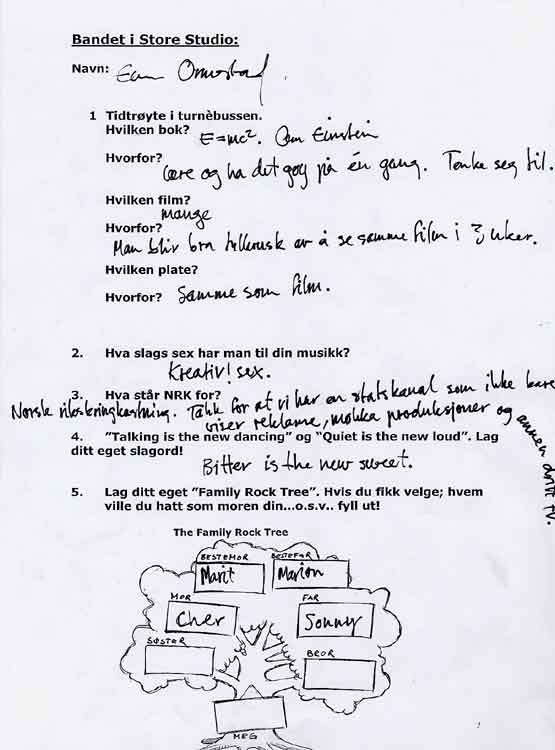 Bandet i Store Studio:
Navn: Ormestad
1 Tidtrøyte i turnèbussen.
Hvilken bok? E=mc². Om Einstein
Hvorfor? Lære og ha det gøy på én gang. Tenke seg til.
Hvilken film?
mange
Hvorfor?
Man blir bra tullerusk av å se samme film i 3 uker.
Hvilken plate?
Hvorfor? Samme som film.
2. Hva slags sex har man til din musikk?
Kreativ! sex.
3. Hva står NRK for?
Norsk rikskringkastning. Takk for at vi har en statskanal som ikke bare
viser reklame, møkka produksjoner og annen dritt TV.
4. ”Talking is the new dancing” og “Quiet is the new loud”. Lag
ditt eget slagord!
Bitter is the new sweet.
5. Lag ditt eget ”Family Rock Tree”. Hvis du fikk velge; hvem
ville du hatt som moren din...o.s.v.. fyll ut!
The Family Rock Tree
BESTEMOR BESTEFAR
Marit Marion
MOR FAR
Cher Sonny
SØSTER BROR
MEG